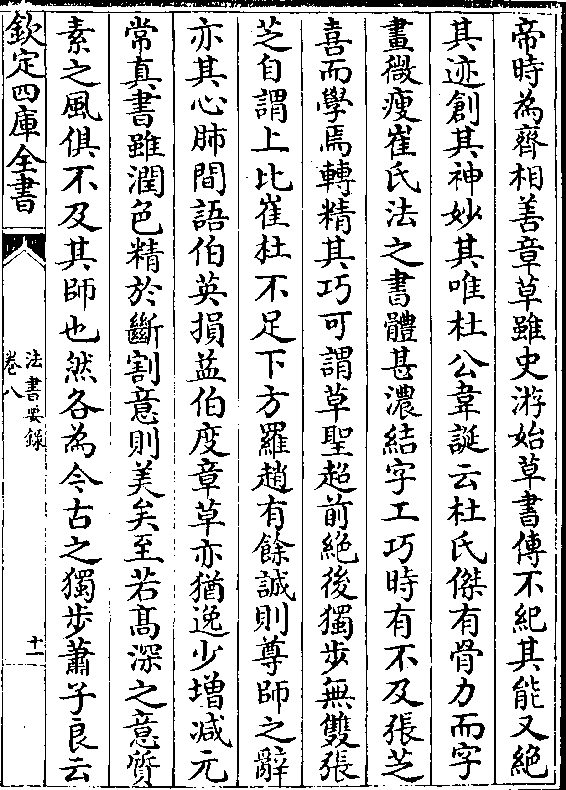 帝時為齊相善章草雖史游始草書傳不紀其能又絶
其迹創其神妙其唯杜公韋誕云杜氏傑有骨力而字
畫微瘦崔氏法之書體甚濃結字工巧時有不及張芝
喜而學焉轉精其巧可謂草聖超前絶後獨步無雙張
芝自謂上比崔杜不足下方羅趙有餘誠則尊師之辭
亦其心肺間語伯英損益伯度章草亦猶逸少增減元
常真書雖潤色精於斷割意則美矣至若髙深之意質
素之風俱不及其師也然各為今古之獨步蕭子良云
欽定四庫全書
法書要錄
卷八
十一